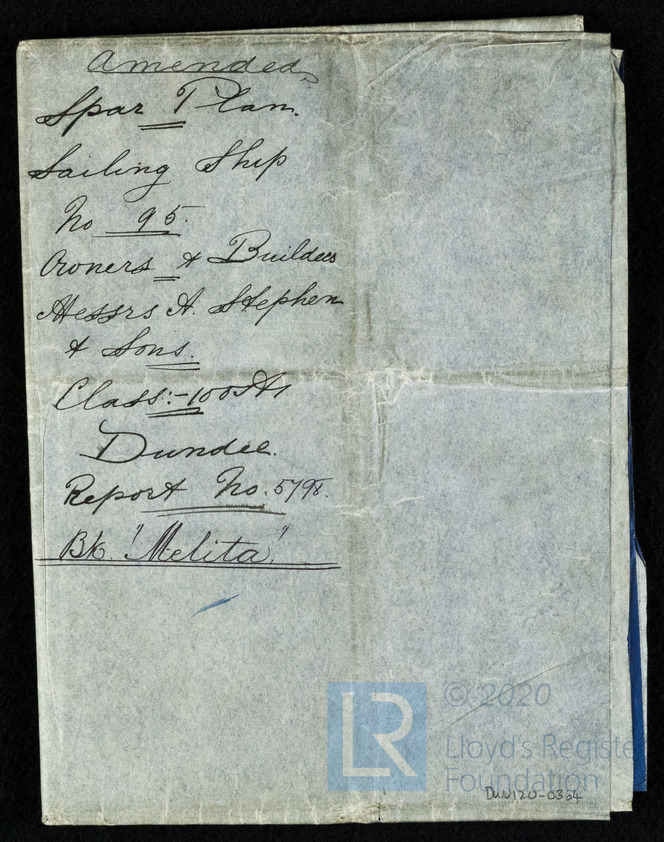 Amended,
Spar Plan.
Sailing Ship
No 95.
Owners & Builders
Messrs A. Stephen
& Sons.
Class:-100A1
Dundee.
Report No. 5798.
Bk. "Melita"
LR
© 2020
Lloyd's Register
Foundation
DUN120-0364